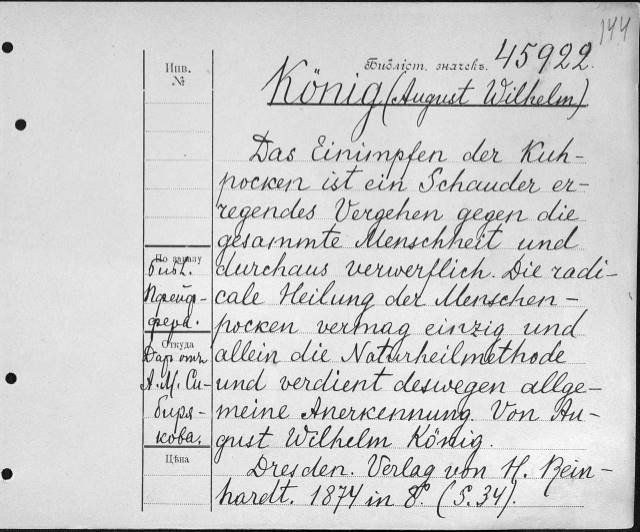 144
Инв.
№
Библіот. значекъ. 45922.
König (August Wilhelm)
Das Einimpfen der Kuh-
pocken ist ein Schauder er-
regendes Vergehen gegen die
gesammte Menschheit und
durchaus verwerflich. Die radi-
cale Heilung der Menschen-
pocken vermag einzig und
allein die Naturheilmethode
und verdient deswegen allge-
meine Anerkennung. Von Au-
gust Wilhelm König.
Dresden. Verlag von H. Rein-
hardt. 1874 in 8º. (S. 34).
По заказу
библ.
Пфейф-
фера.
Откуда
Даръ отъ
А. М. Си-
биря-
кова.
Цѣна